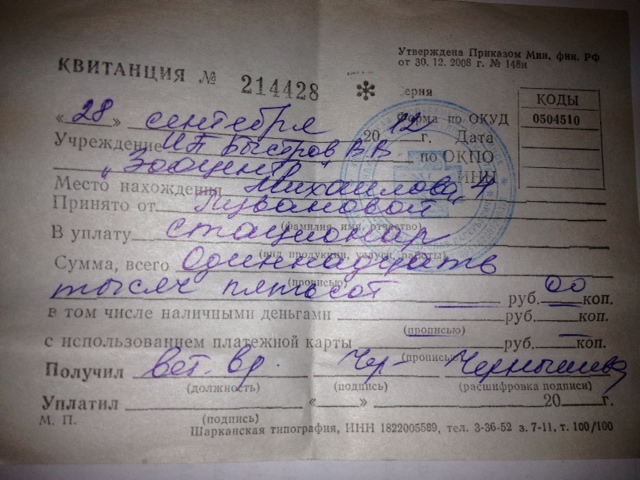 Утверждена Приказом Мин. фин. РФ
от 30. 12. 2008 г. № 148н
КВИТАНЦИЯ № 214428 * ерия
КОДЫ
« 28 » сентября 20 12 г.
Форма по ОКУД 0504510
Дата
Учреждение ИП Быстров В.В по ОКПО
"Зооцентр" ИНН
Место нахождения Михайлова, 4
Принято от
(фамилия, имя, отчество)
В уплату стационар
(вид продукции, услуги, работы)
Сумма, всего Одиннадцать
(прописью)
тысяч пятьсот руб. 00 коп.
в том числе наличными деньгами руб. коп.
(прописью)
с использованием платежной карты руб. коп.
(прописью)
Получил вет. вр. Чер- Чернышева
(должность) (подпись) (расшифровка подписи)
Уплатил « » 20 г.
(подпись)
М. П.
Шарканская типография, ИНН 1822005589, тел. 3-36-52 з. 7-11, т. 100/100